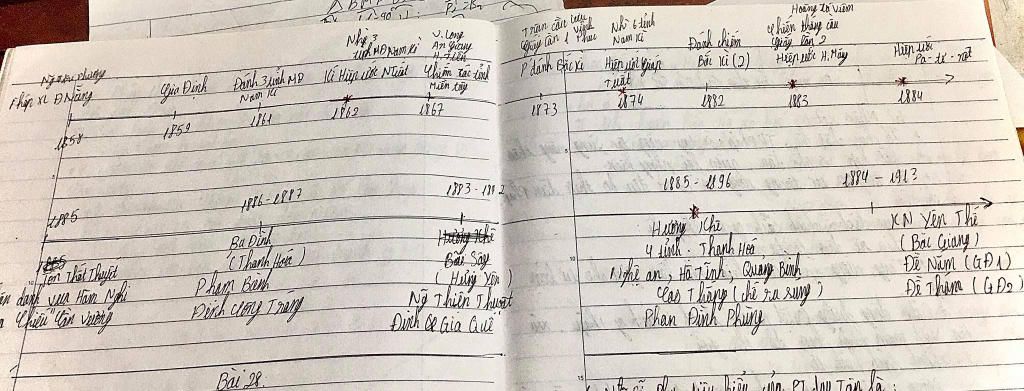 Nguyễn Phương
Pháp XL Đ Nẵng
Gia Định
Đánh 3 tỉnh MĐ
Nam Kì
Nhg 3
tỉnh MĐ Nam Kì
Kí Hiệp ước N Tuất
V. Long
An Giang
H. Tiên
Chiếm các tỉnh
Miền tây
1858
1859
1861
1862
1867
1885
1886 - 1887
1883 - 1892
Ba Đình
(Thanh Hoá)
Phạm Bành
Đinh Công Tráng
Tôn Thất Thuyết
danh vua Hàm Nghi
Chiếu "Cần Vương
Hương Khê
Bãi Sậy
(Hưng Yên)
Ng Thiện Thuật
Đinh Gia Quế
Bài 28.
Trận cầu
Giấy lần 1
P đánh Bắc Kì
Nhì 6 tỉnh
Nam Kì
Hiệp ước Giáp
Tuất
Đánh chiếm
Bắc Kì (2)
Hoàng tá Viêm
Chiến thắng cầu
Giấy lần 2
Hiệp ước H. Măng
Hiệp ước
Pa - tơ - nốt
1873
1874
1882
1883
1884
1885 - 1896
1884 - 1913
Hương Khê
4 tỉnh. Thanh Hoá
Nghệ an, Hà Tĩnh, Quảng Bình
Cao Thắng (chế ra súng)
Phan Đình Phùng
KN Yên Thế
(Bắc Giang)
Đề Nắm (GĐ1)
Đề Thám (GĐ2)